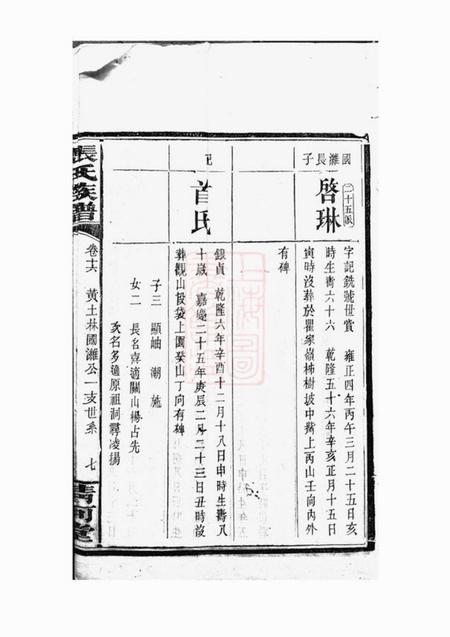 國濰長子
二十五派
啓琳
字記銑號世賞 雍正四年丙午三月二十五日亥
時生壽六十六 乾隆五十六年辛亥正月十五日
寅時沒葬於瞿家嶺柿樹披中嘴上丙山壬向內外
有碑
配
首氏
銀貞 乾隆六年辛酉十二月十八日申時生壽八
十歲 嘉慶二十五年庚辰二月二十三日丑時沒
葬觀山股袋上園癸山丁向有碑
子三 顯岫 潮 施
女二 長名喜適關山楊占先
次名多適原祖洞尋凌揚
張氏族譜
卷十六 黃土林國濰公一支世系 七
清河堂